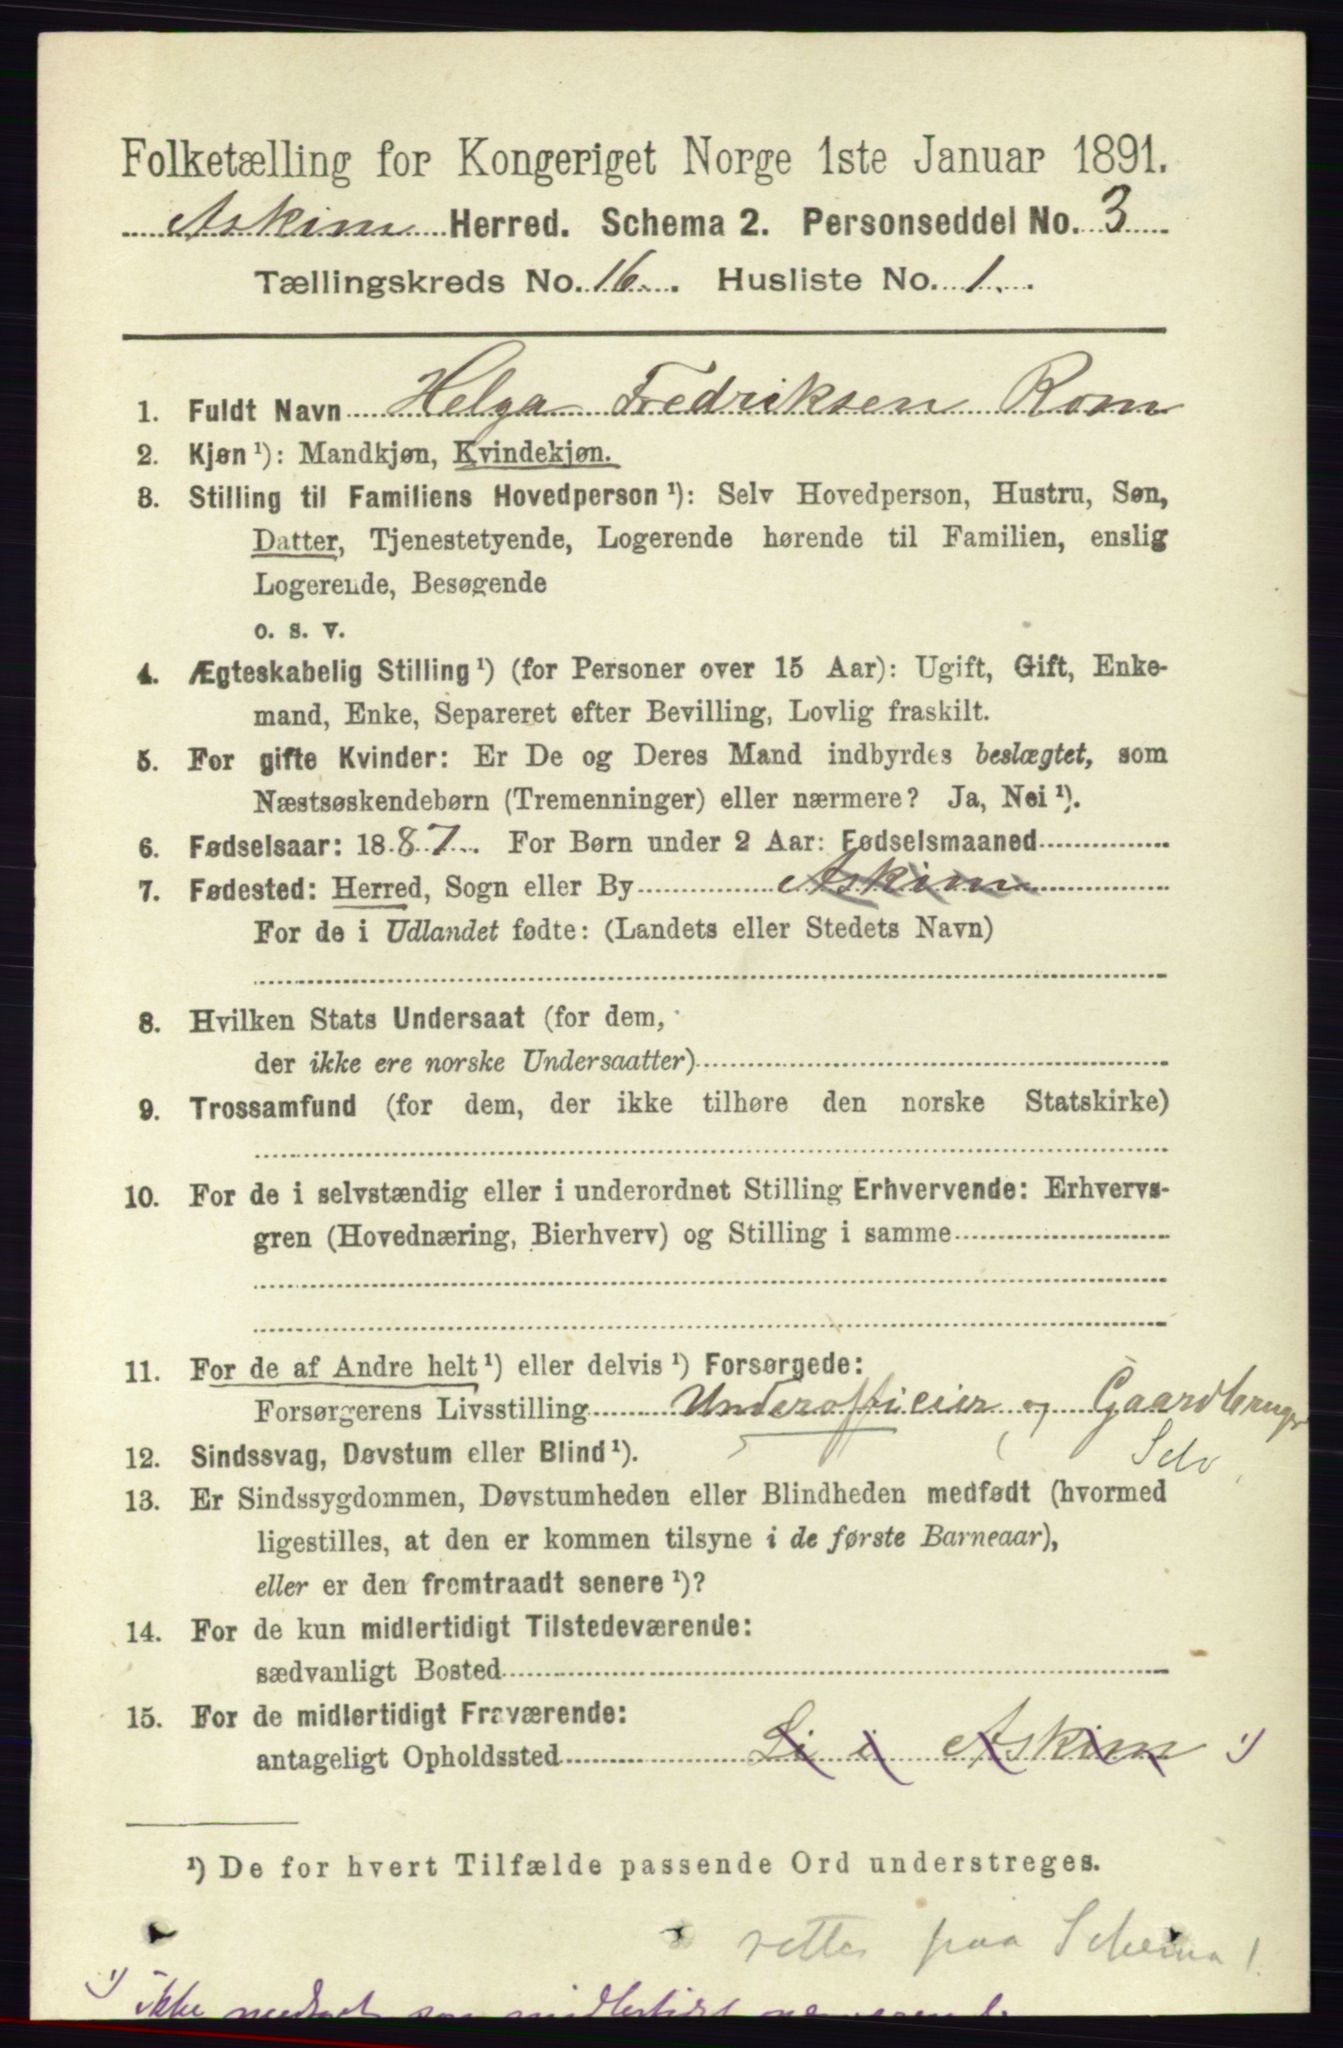 Folketælling for Kongeriget Norge 1ste Januar 1891.
Askim Herred. Schema 2. Personseddel No. 3
Tællingskreds No. 16. Husliste No. 1.
1. Fuldt Navn Helga Fredriksen Rom
2. Kjøn ¹): Mandkjøn, Kvindekjøn.
3. Stilling til Familiens Hovedperson ¹): Selv Hovedperson, Hustru, Søn,
Datter, Tjenestetyende, Logerende hørende til Familien, enslig
Logerende, Besøgende
o. s. v.
4. Ægteskabelig Stilling ¹) (for Personer over 15 Aar): Ugift, Gift, Enke-
mand, Enke, Separeret efter Bevilling, Lovlig fraskilt.
5. For gifte Kvinder: Er De og Deres Mand indbyrdes beslægtet, som
Næstsøskendebørn (Tremenninger) eller nærmere? Ja, Nei ¹).
6. Fødselsaar: 1887. For Børn under 2 Aar: Fødselsmaaned
7. Fødested: Herred, Sogn eller By Askim
For de i Udlandet fødte: (Landets eller Stedets Navn)
8. Hvilken Stats Undersaat (for dem,
der ikke ere norske Undersaatter)
9. Trossamfund (for dem, der ikke tilhøre den norske Statskirke)
10. For de i selvstændig eller i underordnet Stilling Erhvervende: Erhvervs-
gren (Hovednæring, Bierhverv) og Stilling i samme
11. For de af Andre helt ¹) eller delvis ¹) Forsørgede:
Forsørgerens Livsstilling Underofficier og Gaardbruger
Selv
12. Sindssvag, Døvstum eller Blind ¹).
13. Er Sindssygdommen, Døvstumheden eller Blindheden medfødt (hvormed
ligestilles, at den er kommen tilsyne i de første Barneaar),
eller er den fremtraadt senere ¹)?
14. For de kun midlertidigt Tilstedeværende:
sædvanligt Bosted
15. For de midlertidigt Fraværende:
antageligt Opholdssted Li i Askim ¹)
¹) De for hvert Tilfælde passende Ord understreges.
rettes paa Schema 1.
¹) ikke medregnet som midlertidigt